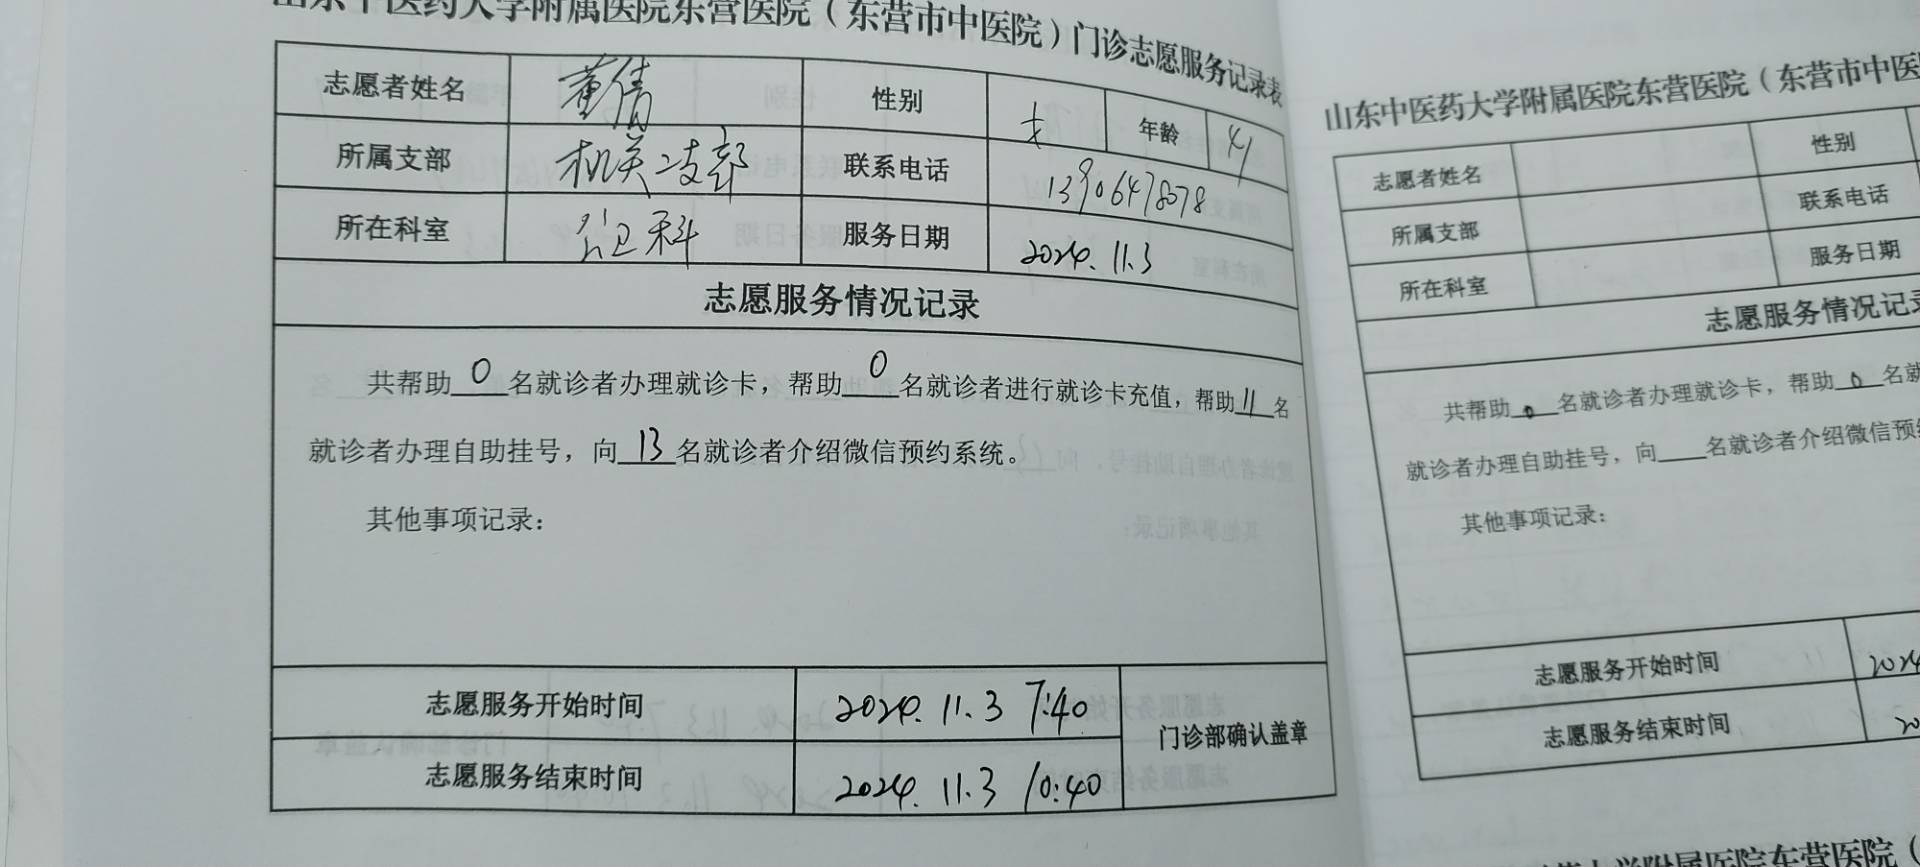 山东中医药大学附属医院东营医院（东营市中医院）门诊志愿服务记录表
志愿者姓名 董倩 性别 女 年龄 41
所属支部 机关二支部 联系电话 13906478078
所在科室 公卫科 服务日期 2024.11.3
志愿服务情况记录
共帮助 0 名就诊者办理就诊卡，帮助 0 名就诊者进行就诊卡充值，帮助 11 名
就诊者办理自助挂号，向 13 名就诊者介绍微信预约系统。
其他事项记录：
志愿服务开始时间 2024.11.3 7:40
志愿服务结束时间 2024.11.3 10:40
门诊部确认盖章
山东中医药大学附属医院东营医院（东营市中医
志愿者姓名 性别
所属支部 联系电话
所在科室 服务日期
志愿服务情况记录
共帮助 0 名就诊者办理就诊卡，帮助 0 名就
就诊者办理自助挂号，向____名就诊者介绍微信预约
其他事项记录：
志愿服务开始时间 2024
志愿服务结束时间 20
大学附属医院东营医院（